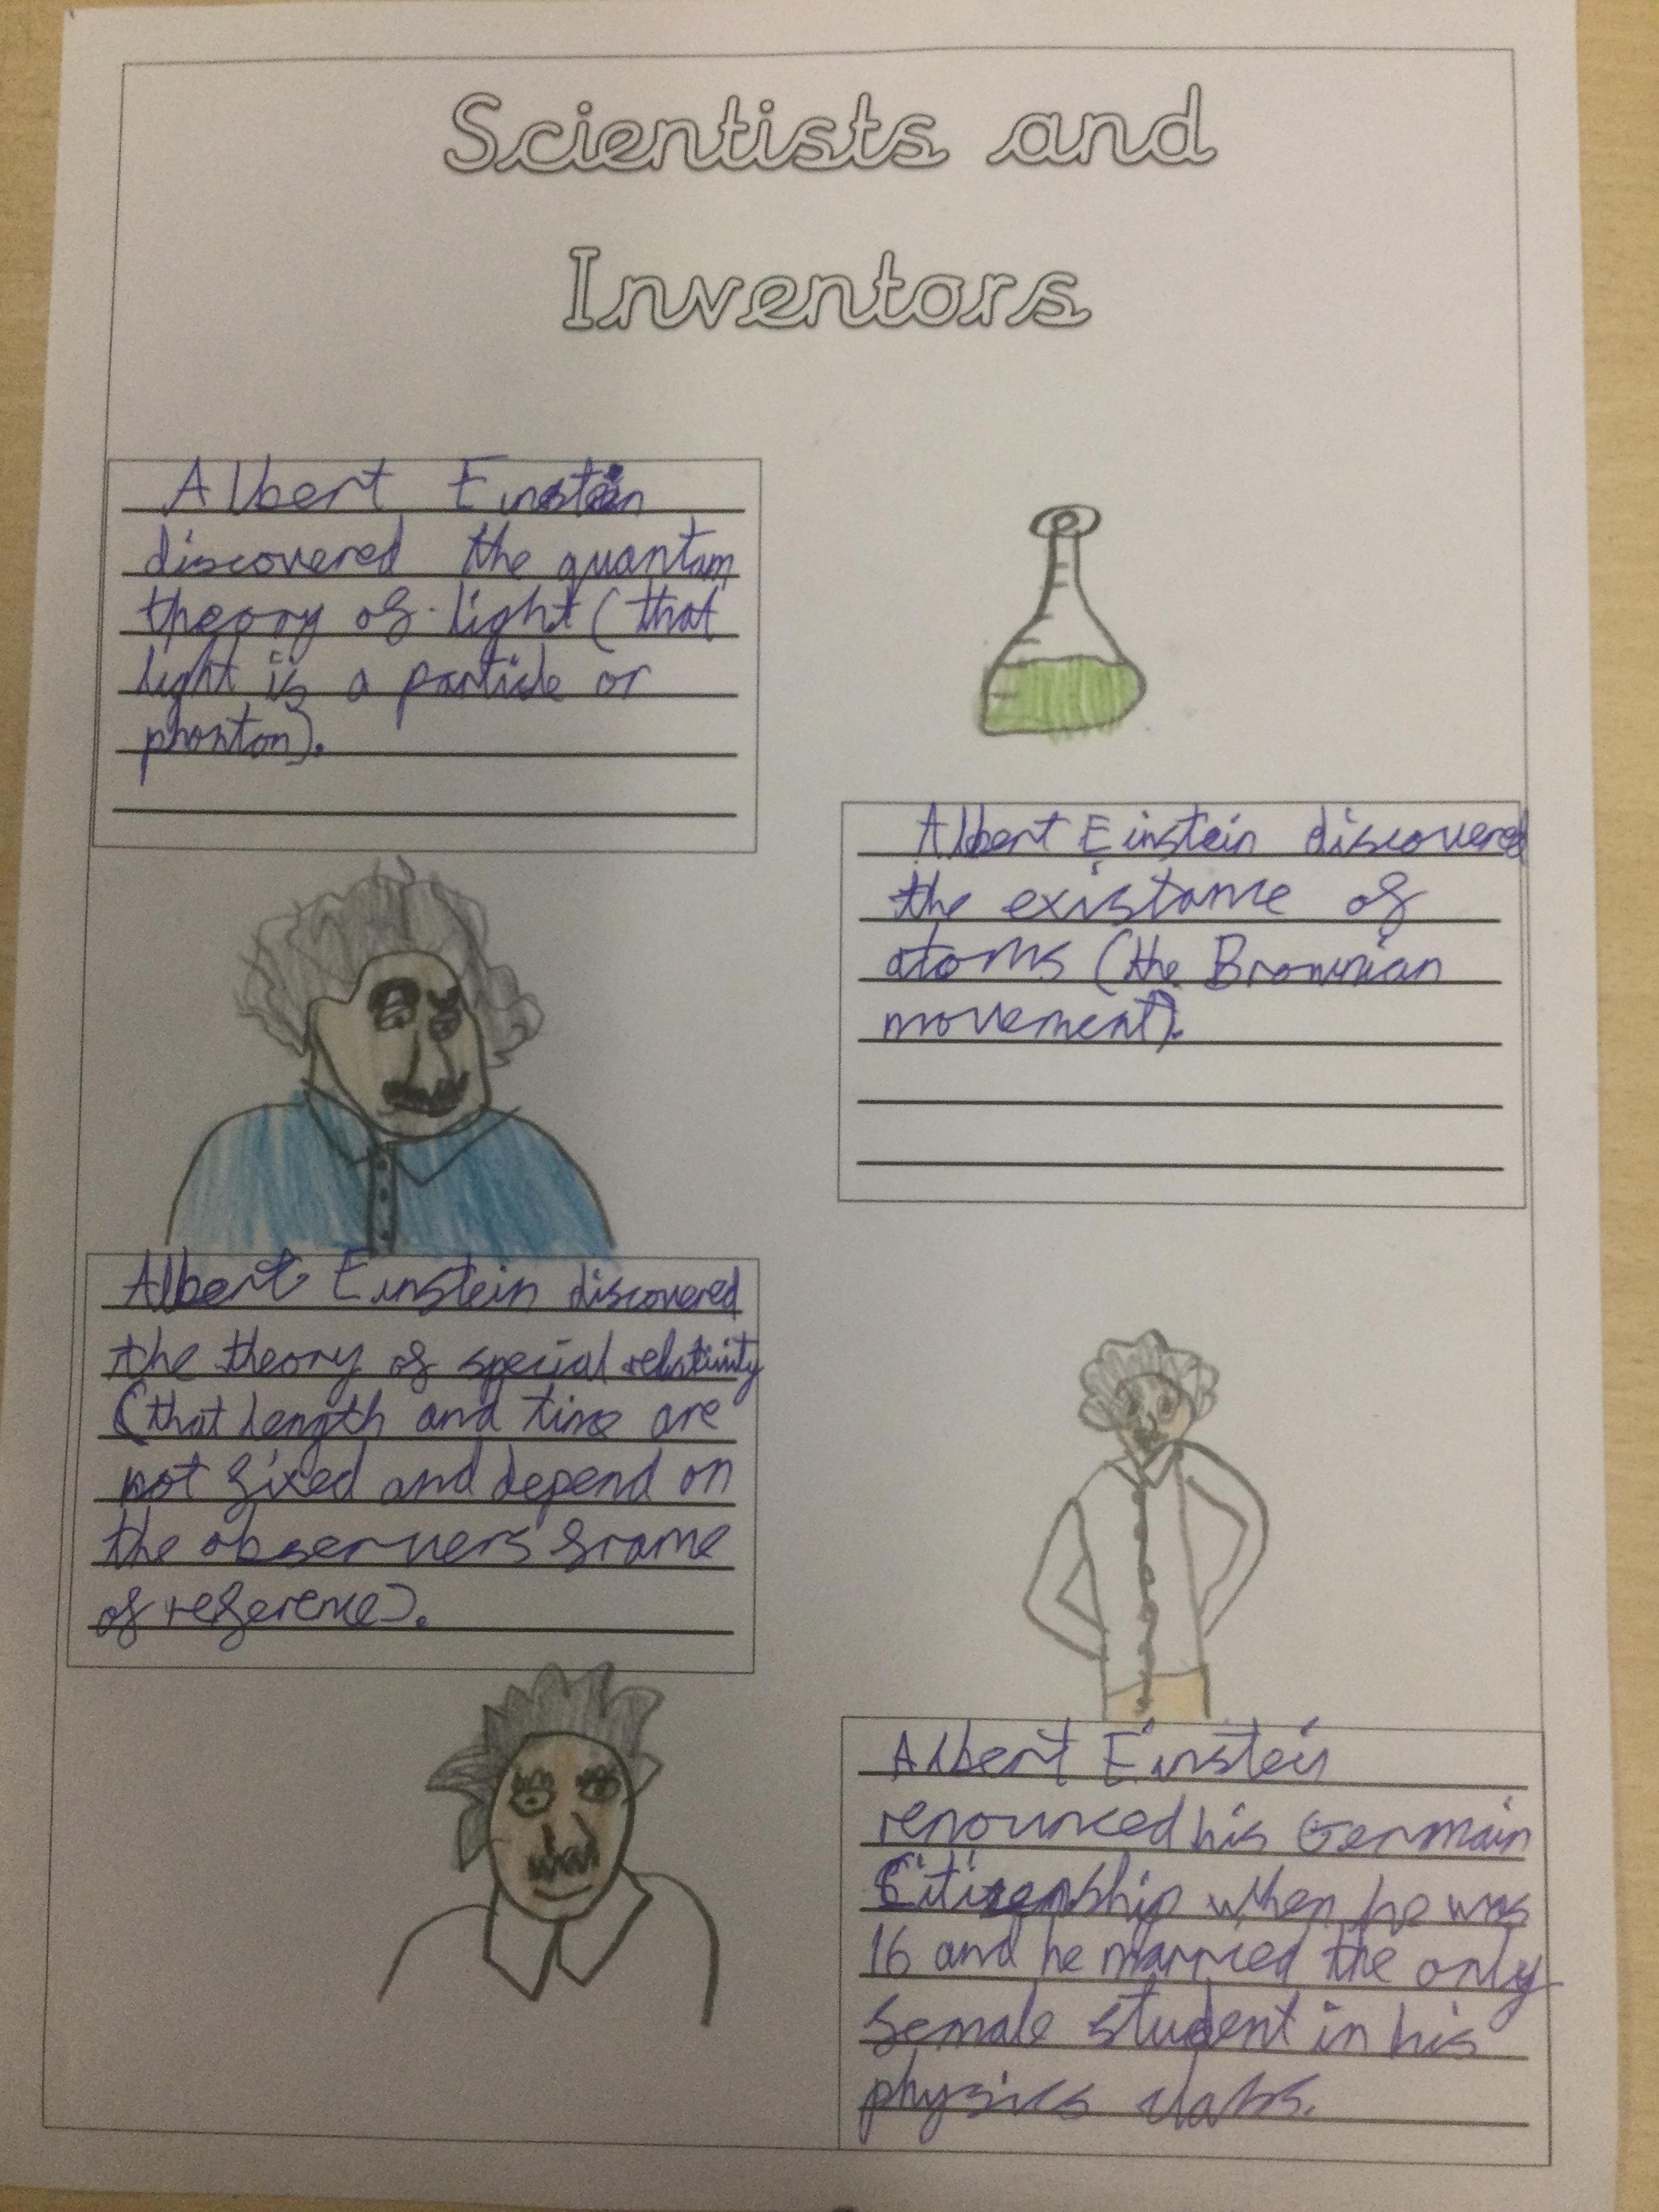 Scientists and
Inventors
Albert Einstein
discovered the quantam
theory of light (that
light is a particle or
phonton).
Albert Einstein discovered
the existance of
atoms (the Brownian
movement).
Albert Einstein discovered
the theory of special relativity
(that length and time are
not fixed and depend on
the observers frame
of reference).
Albert Einstein
renounced his Germain
Citizenship when he was
16 and he married the only
female student in his
physics class.